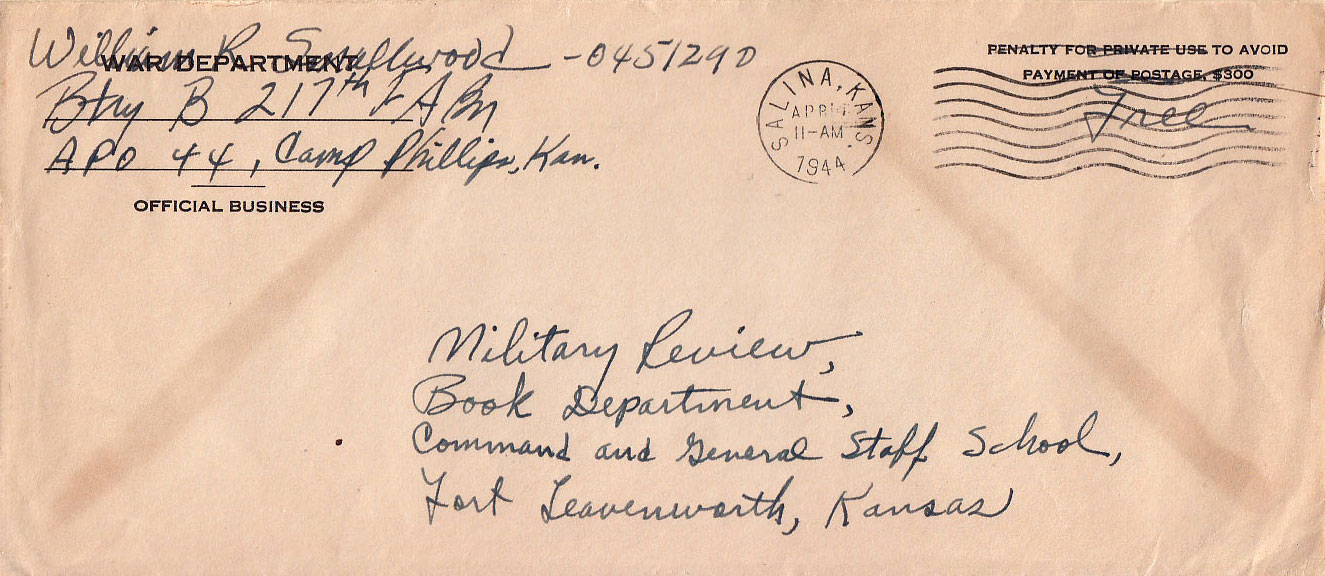 William R. Smallwood - 0451290
WAR DEPARTMENT
Btry B 217th F A Bn
APO 44, Camp Phillips, Kan.
OFFICIAL BUSINESS
SALINA, KANS.
APR
11-AM
1944
PENALTY FOR PRIVATE USE TO AVOID
PAYMENT OF POSTAGE, $300
Free
Military Review,
Book Department,
Command and General Staff School,
Fort Leavenworth, Kansas